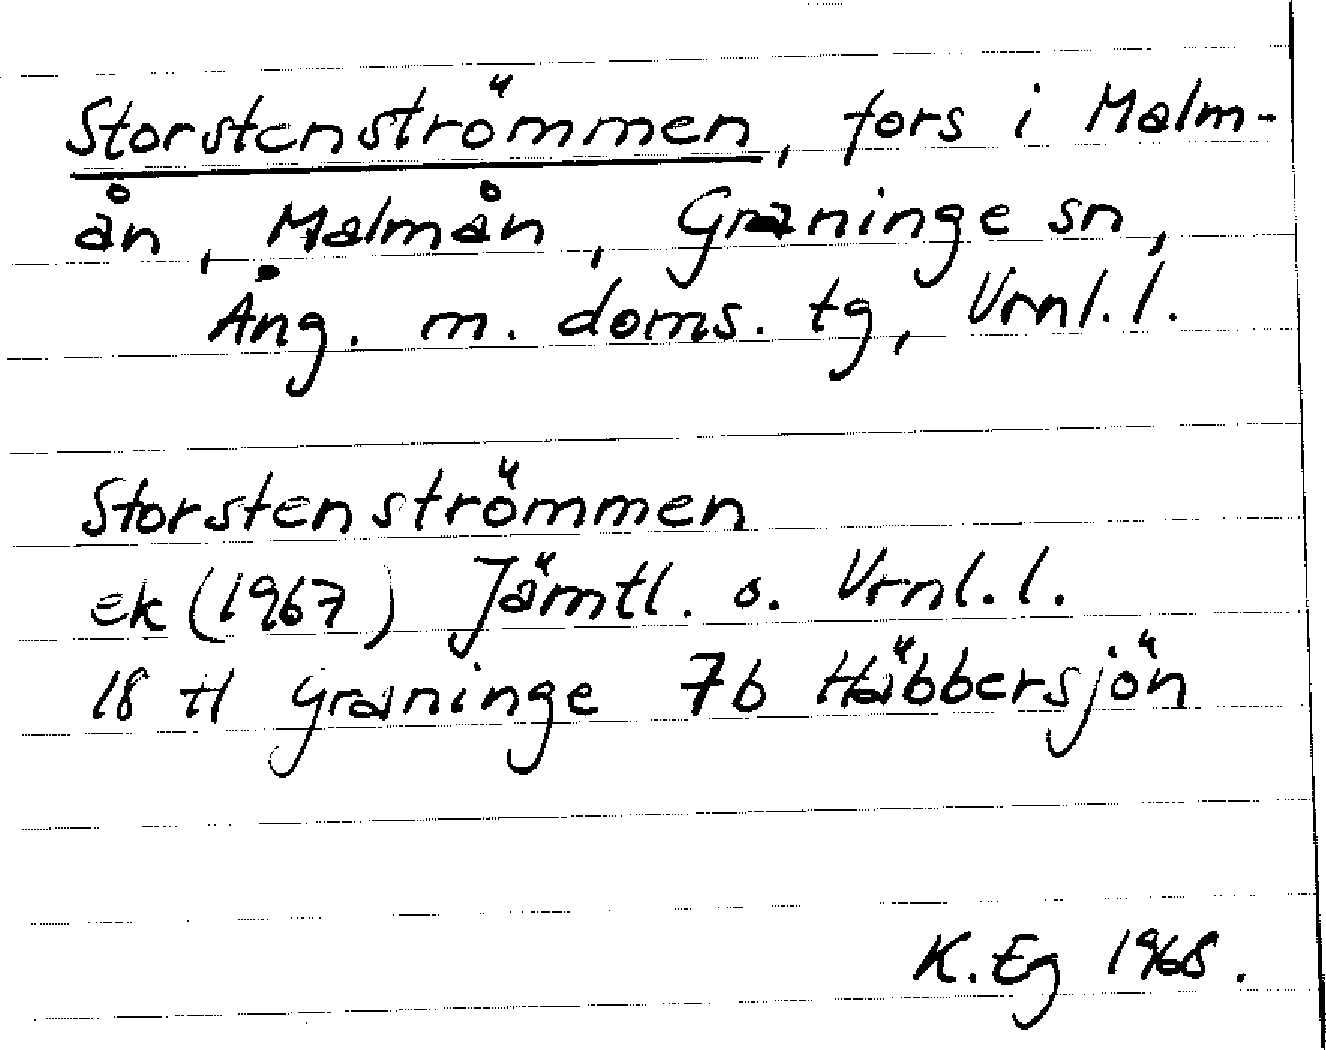 Storstenströmmen, fors i Malm-
ån, Malmån, Graninge sn,
Ång. m. doms. tg, Vrnl. l.
Storstenströmmen
ek (1967) Jämtl. o. Vrnl. l.
18 H Graninge 7b Häbbersjön
K. Eg 1968.